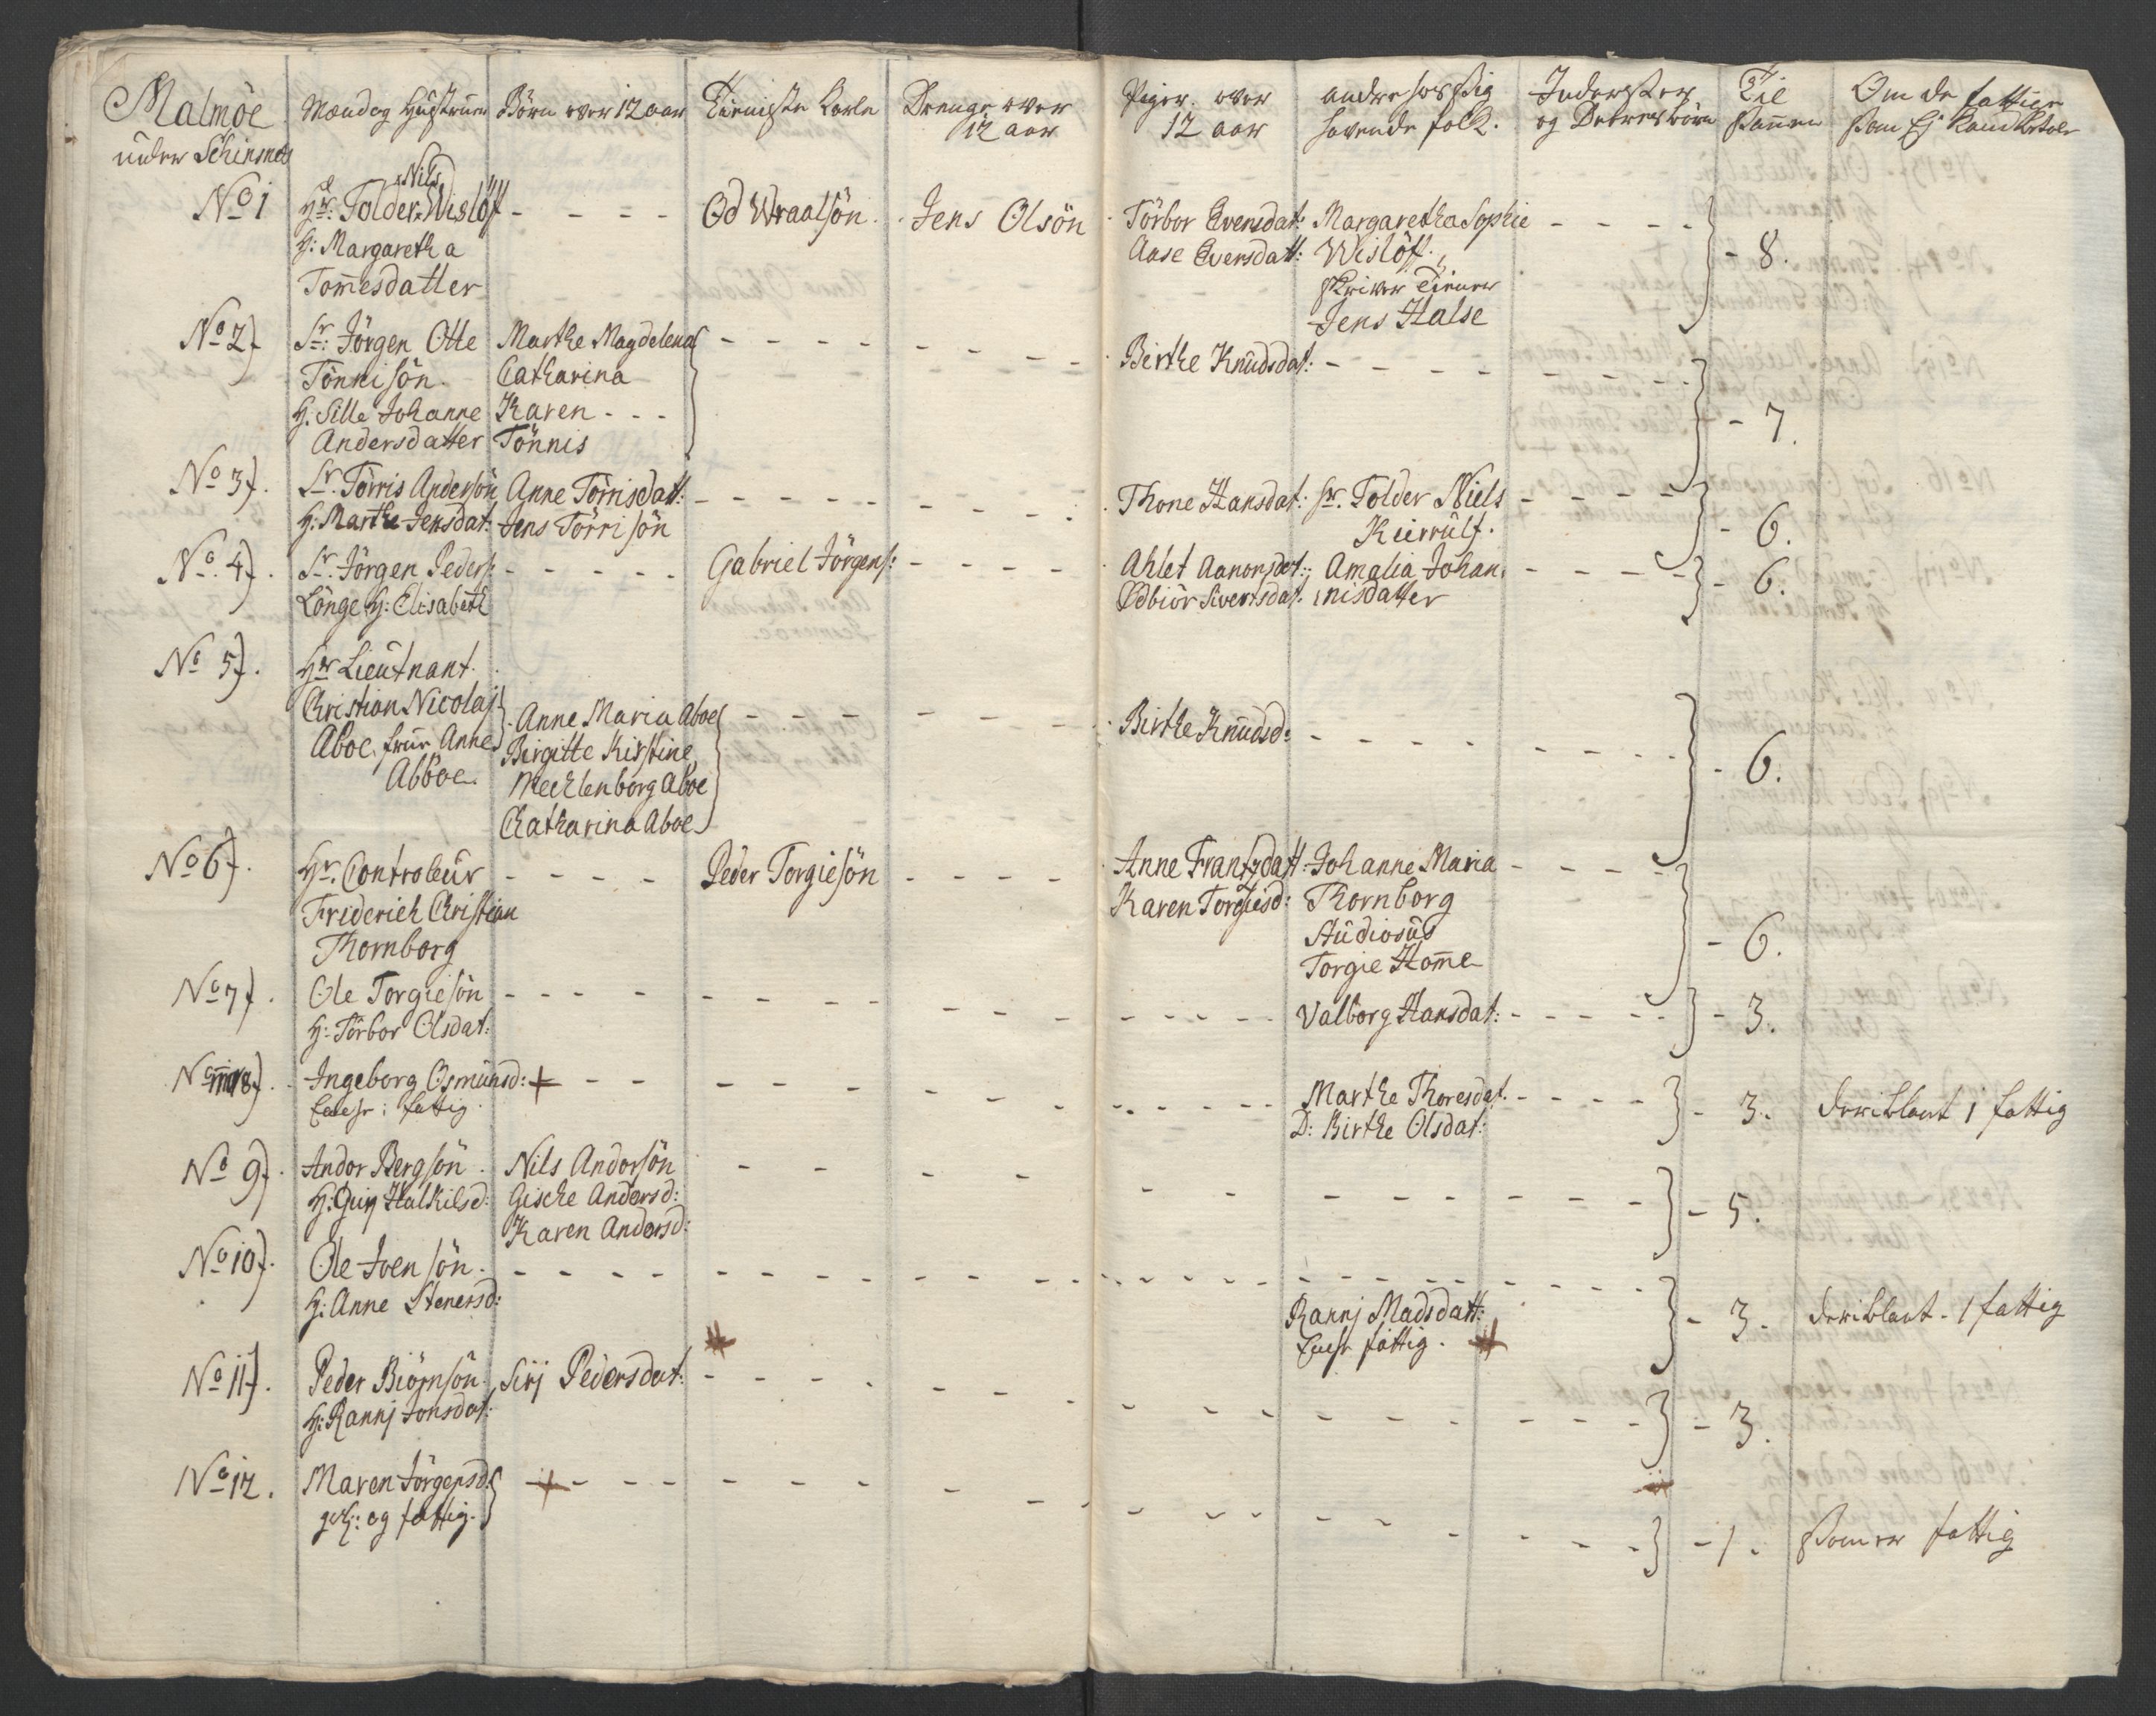 Malmöe
under Schinsnes
Mand og Hustruer
Börn over 12 aar
Tieniste Karle
Drenge over
12 aar
Piger over
12 aar
andre hos sig
havende folk.
Inderster
og Deres börn
Til
sammen
Om de fattige
som Ej kand betale
No 1
Nils
Hr: Tolder Wislöff - - - -
H: Margaretha
Tom̄esdatter
Od Wraalsön.
Jens Olsön
Törbor Evensdat:
Aase Eversdatt:
Margaretha Sophie
Wislöff.
skriver Tiener
Jens Halse
- 8.
No 2)
Sr: Jörgen Otte
Tönnisön.
H: Sille Johanne
Andersdatter
Marthe Magdelena
Catharina
Karen - - -
Tönnis
Birthe Knudsdat:
- 7.
No 3).
Sr. Törris Andersön
H: Marthe Jensdat:
Anne Törrisdatt:
Jens Törrisön
Thone Hansdat:
Hr. Tolder Niels
Kierrulf.
- 6.
No. 4).
Sr. Jörgen Peders:
Longe H: Elisabeth
Gabriel Jörgens:
Ahlet Aanonsdat:
Odbiör Siversdat.
Amalia Johan,
nisdatter
- 6.
No 5).
Hr Lieutnant
Christian Nicolaj
Aboe, frue Anne
Abboe.
Anne Maria Aboe
Birgitte Kirstine
Mechlenborg Aboe
Chatharina Aboe
Birthe Knudsd:
- 6.
No 6).
Hr. Controleur
Friderich Christian
Thornborg
Peder Torgiesön
Anne Frantzdatt:
Karen Torgiesd:
Johanne Maria
Thornborg
Studiosus
Torgie Hom̄e
- 6.
No 7).
Ole Torgiesön
H: Törbor Olsdat:
Valborg Hansdat:
- 3.
No 8).
Ingeborg Osmunsd: +
fattig
Marthe Thoresdat.
D: Birthe Olsdat:
- 3. deriblant 1 fattig
No 9).
Andor Bergsön
H: Gurj Halkilsd:
Nils Andorsön
Gische Andersd:
Karen Andersd:
- 5.
No 10).
Ole Joensön.
H: Anne Stenersd:
Rannj Madsdatt:
fattig.
- 3. deriblant - 1 fattig
No 11).
Peder Biörnsön
H: Rannj Jonsdat:
Sirj Pedersdat:
- 3.
No 12.
Maren Jörgensd:
og fattig.
+
- 1. som er fattig